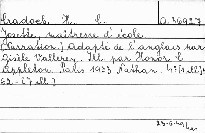 Bradock, H. C. O. 46927
Josette, maîtresse d'école
(Narration.) Adapté de l'anglais par
Gisèle Vallerey. Ill. par Honor C.
Appleton. Paris 1953 Nathan. 4°(1 all.)
62 - (7 all.)
23-6-42/